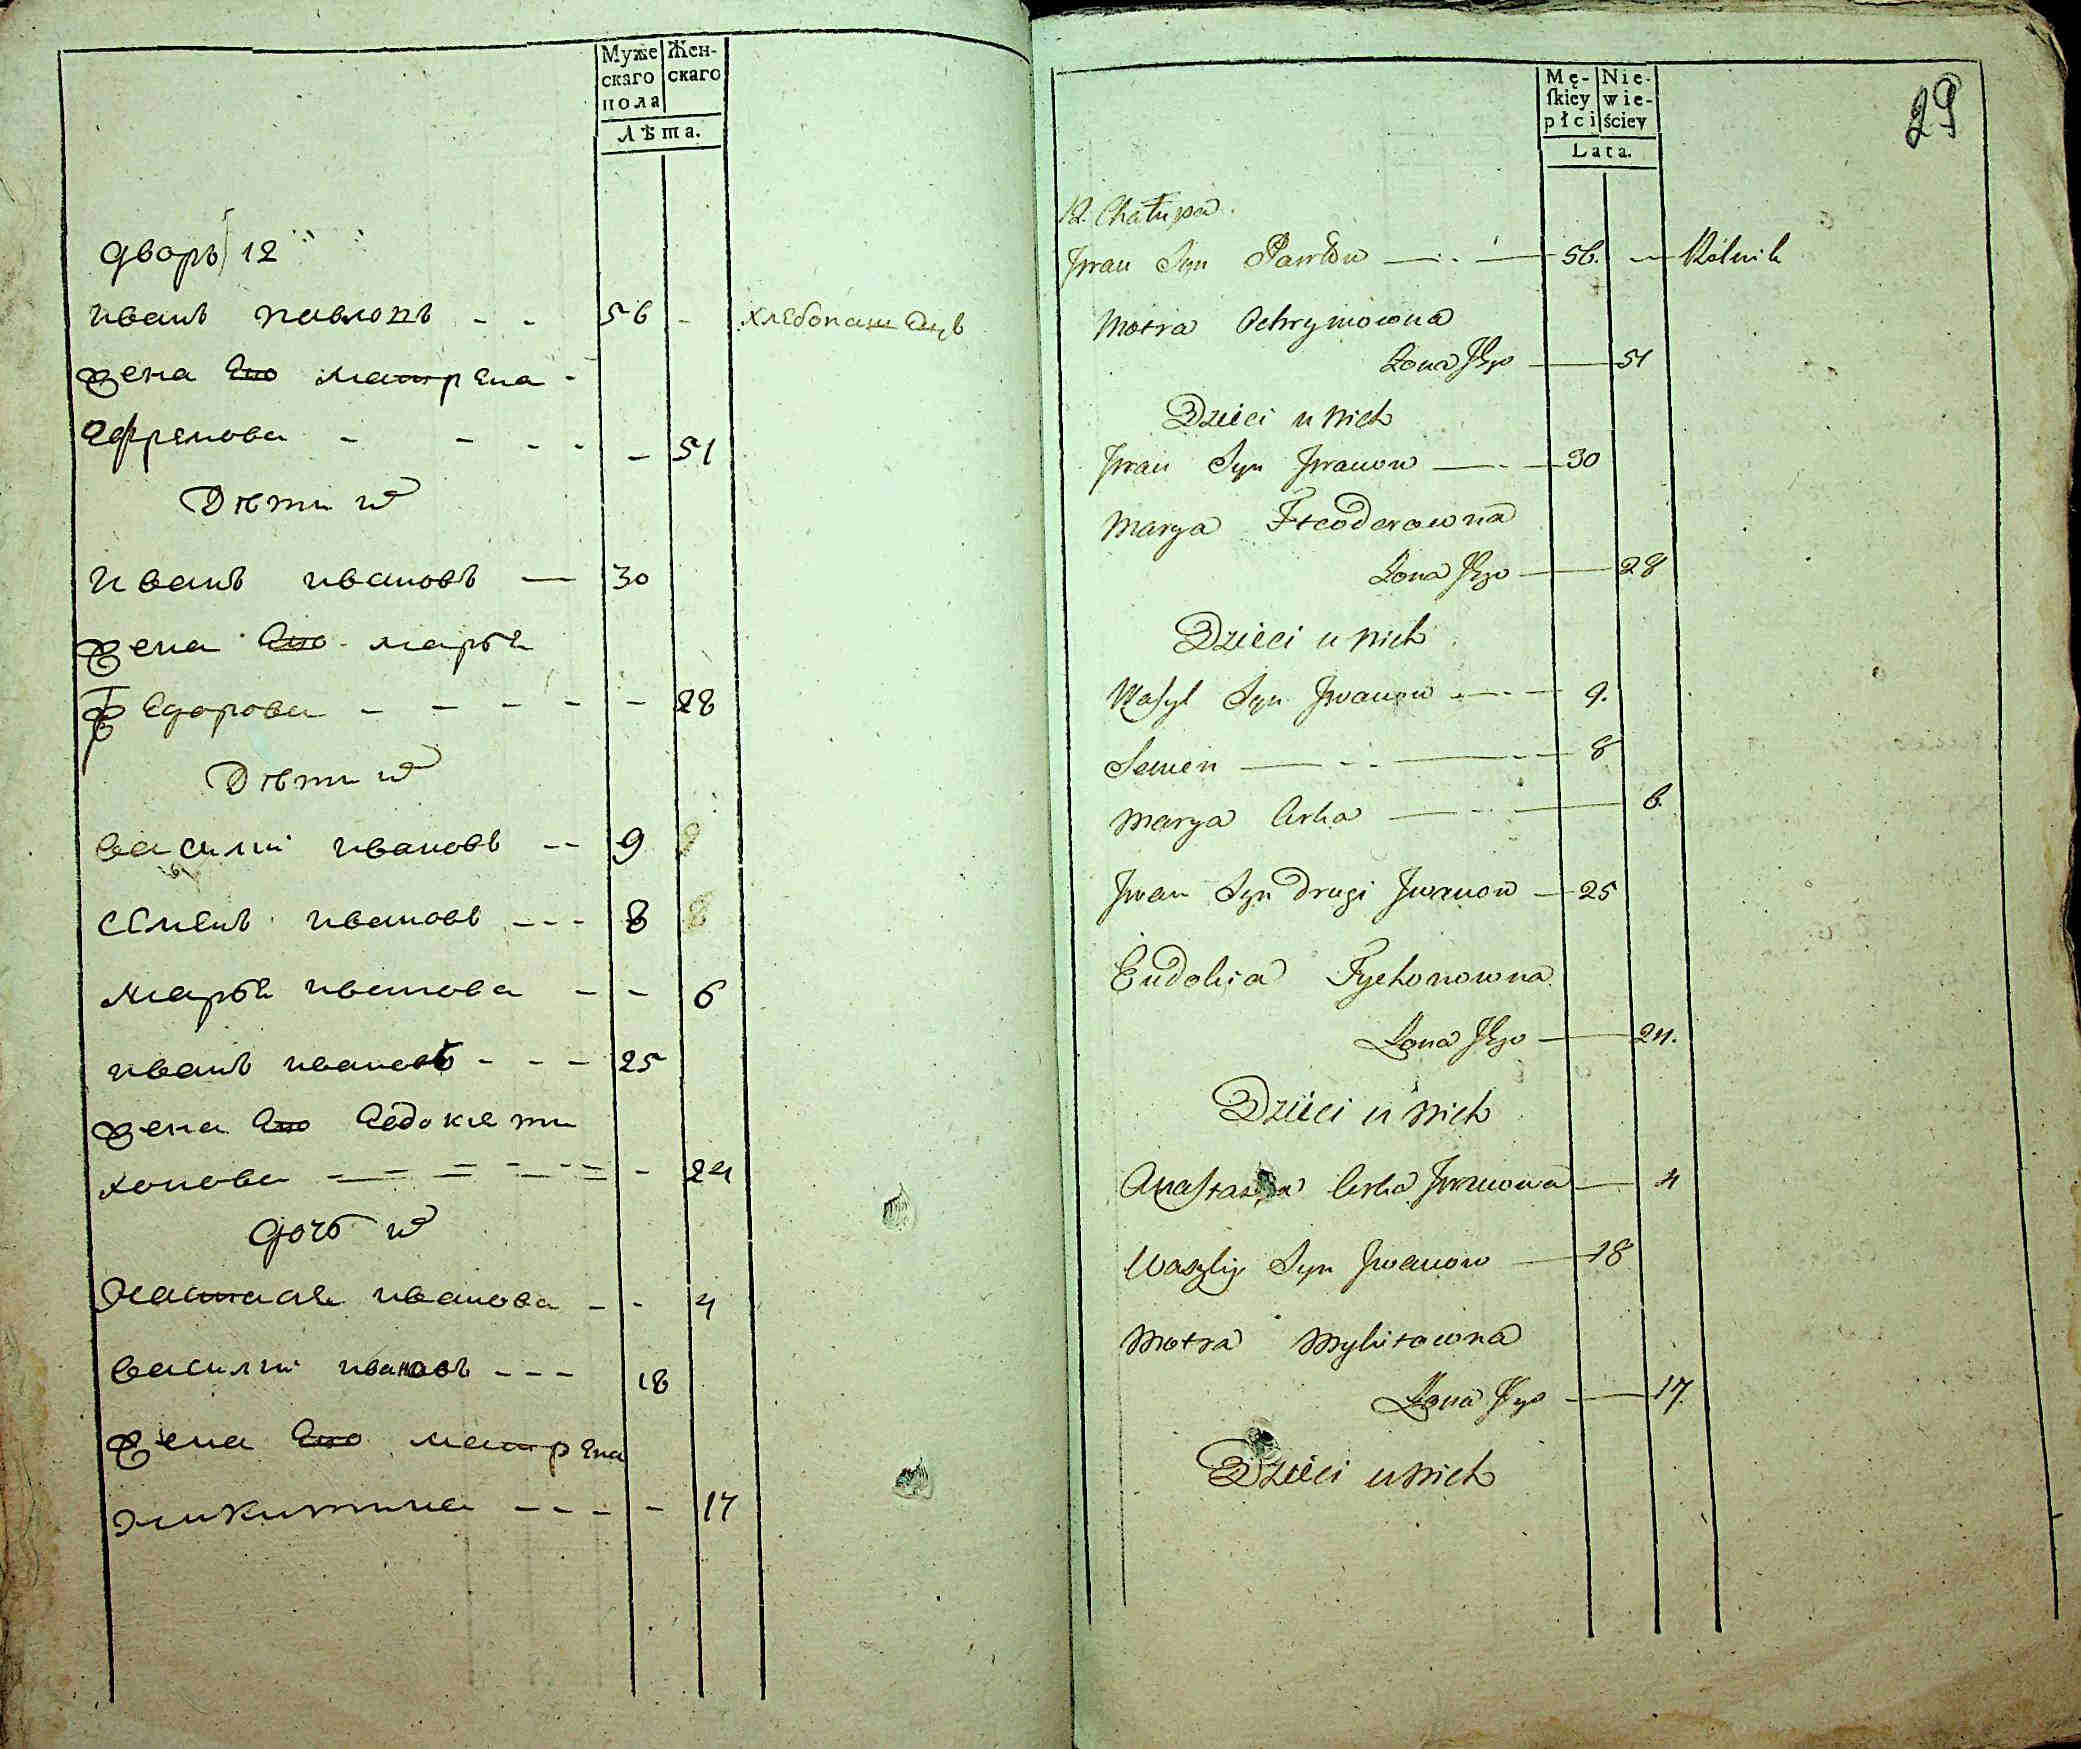 Муже Жен-
скаго скаго
пола
Лѣта.
дворъ 12
иванъ павловъ - - 56 - хлебопашецъ
жена Его матрена -
Ефремова - - - - - 51
Дѣти их
иванъ ивановъ — 30
жена Его марья
Федорова - - - - - 28
Дѣти их
василий ивановъ -- 9 9
семенъ ивановъ --- 8 8
марья иванова - - 6
иванъ ивановъ - - - 25
жена Его Евдокея ти
хонова - - - - - - 24
дочь их
настася иванова - - 4
василий ивановъ --- 18
жена Его матрена
никитина - - - - 17
29
Mę- Nie-
ſkiey wie-
płci ściey
Lata.
12. Chałupa.
Jwan Syn Pawłow — 56. — Rolnik
Motra Ochrymowna
Żona Jego — 51
Dzieci u Nich
Jwan Syn Jwanow — 30
Marya Fteodorowna
Żona Jego — 28
Dzieci u Nich
Waſyl Syn Jwanow — 9.
Semen — 8
Marya Corka — 6.
Jwan Syn drugi Jwanow — 25
Eudokia Tychonowna
Żona Jego — 24.
Dzieci u Nich
Anaſtazya Corka Jwanowa — 4
Waszlij Syn Jwanow — 18
Motra Mykitowna
Żona Jego — 17.
Dzieci u Nich